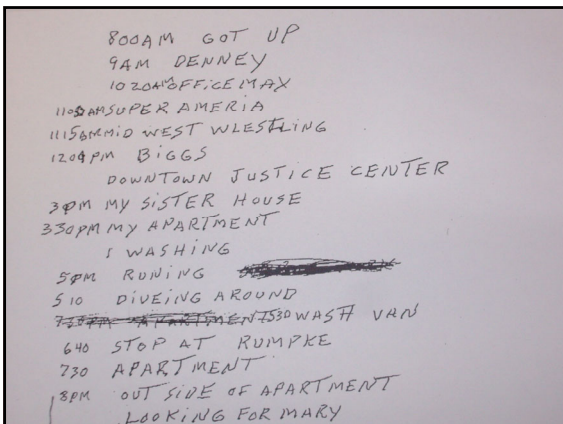 800AM GOT UP
9AM DENNEY
1020AM OFFICE MAX
1105AM SUPER AMERIA
1115AM MID WEST WLESTLING
1204PM BIGGS
DOWNTOWN JUSTICE CENTER
30PM MY SISTER HOUSE
330PM MY APARTMENT
WASHING
5PM RUNING
510 DIVEING AROUND
530 WASH VAN
640 STOP AT RUMPKE
730 APARTMENT
8PM OUT SIDE OF APARTMENT
LOOKING FOR MARY